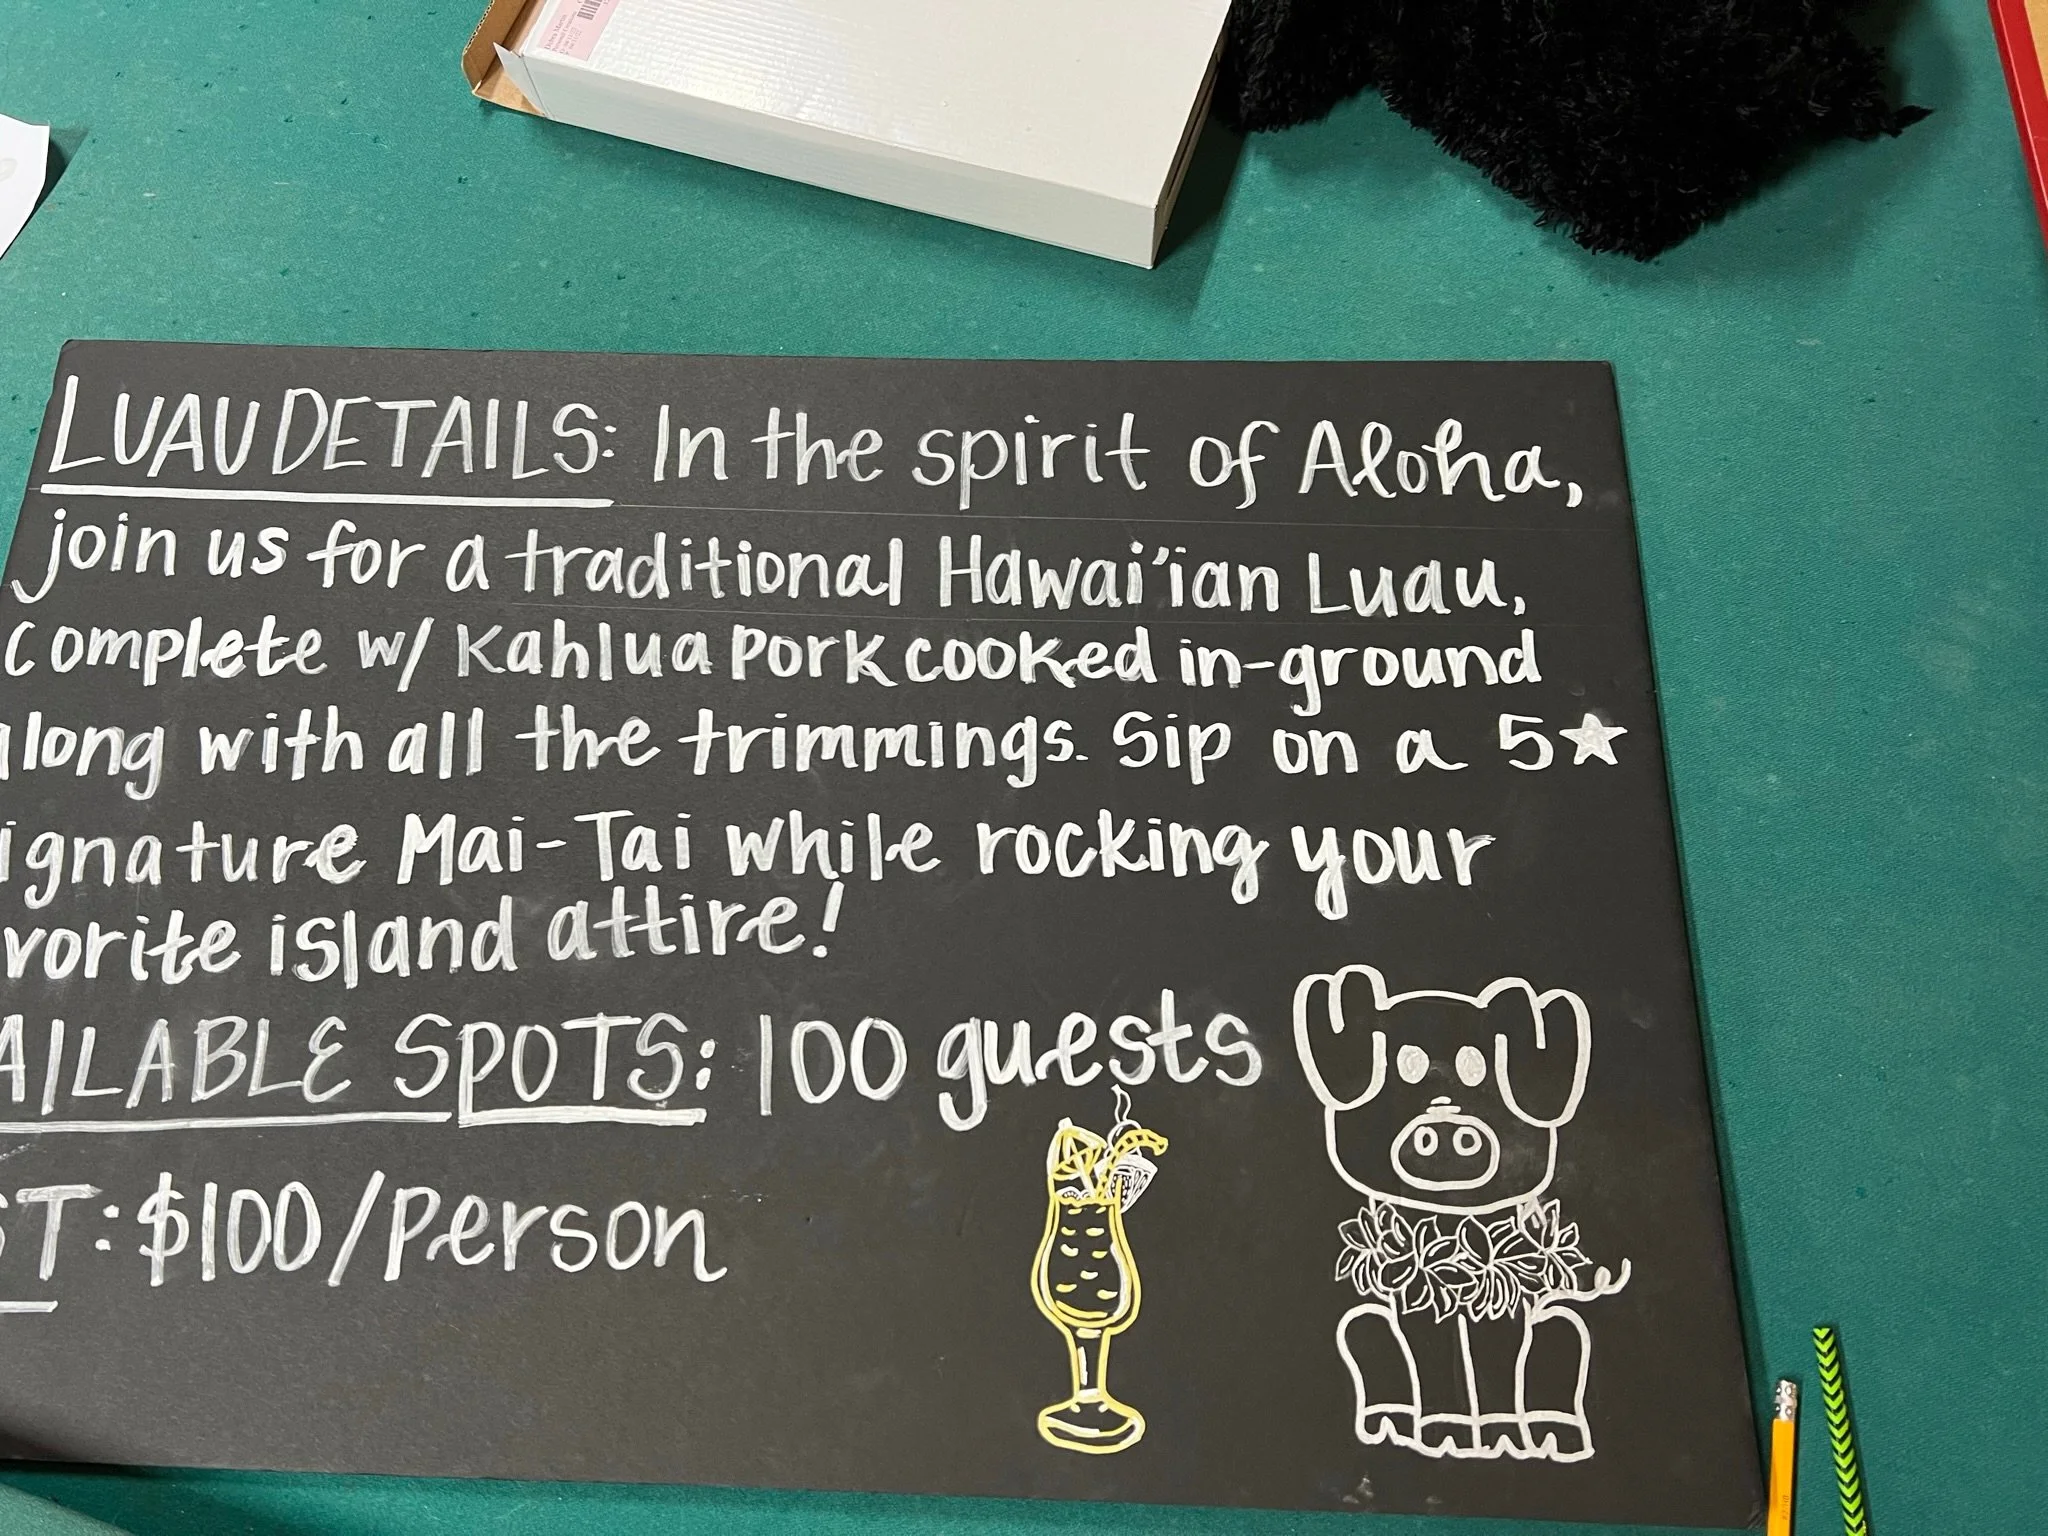 LUAU DETAILS: In the spirit of Aloha,
join us for a traditional Hawai'ian Luau,
complete w/ Kahlua pork cooked in-ground
along with all the trimmings. Sip on a 5★
ignature Mai-Tai while rocking your
vorite island attire!
AILABLE SPOTS: 100 guests
ST: $100/Person